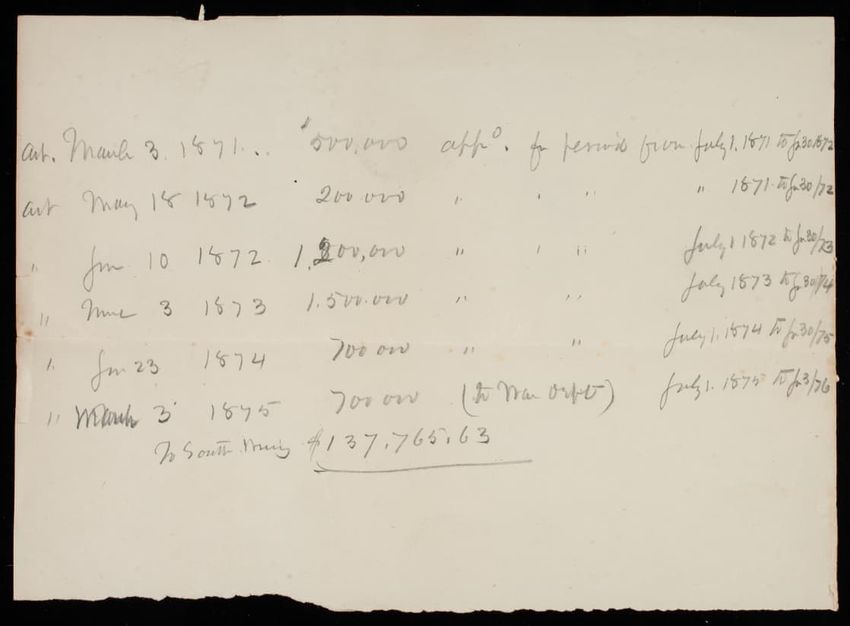 act. March 3. 1871... $500,000 app⁰. for period from July 1. 1871 to Jn 30 1872
act May 18 1872 200 000 " " " " 1871 to Jn 30/72
" Jun 10 1872 1.200,000 " " " July 1 1872 to Jn 30/73
" 3 1873 1.500.000 " " July 1873 to Jn 30/74
" Jun 23 1874 700 000 " " July 1. 1874 to Jn 30/75
" March 3 1875 700 000 (to War Dept) July 1. 1875 to Jn 3/76
To South $137,765.63